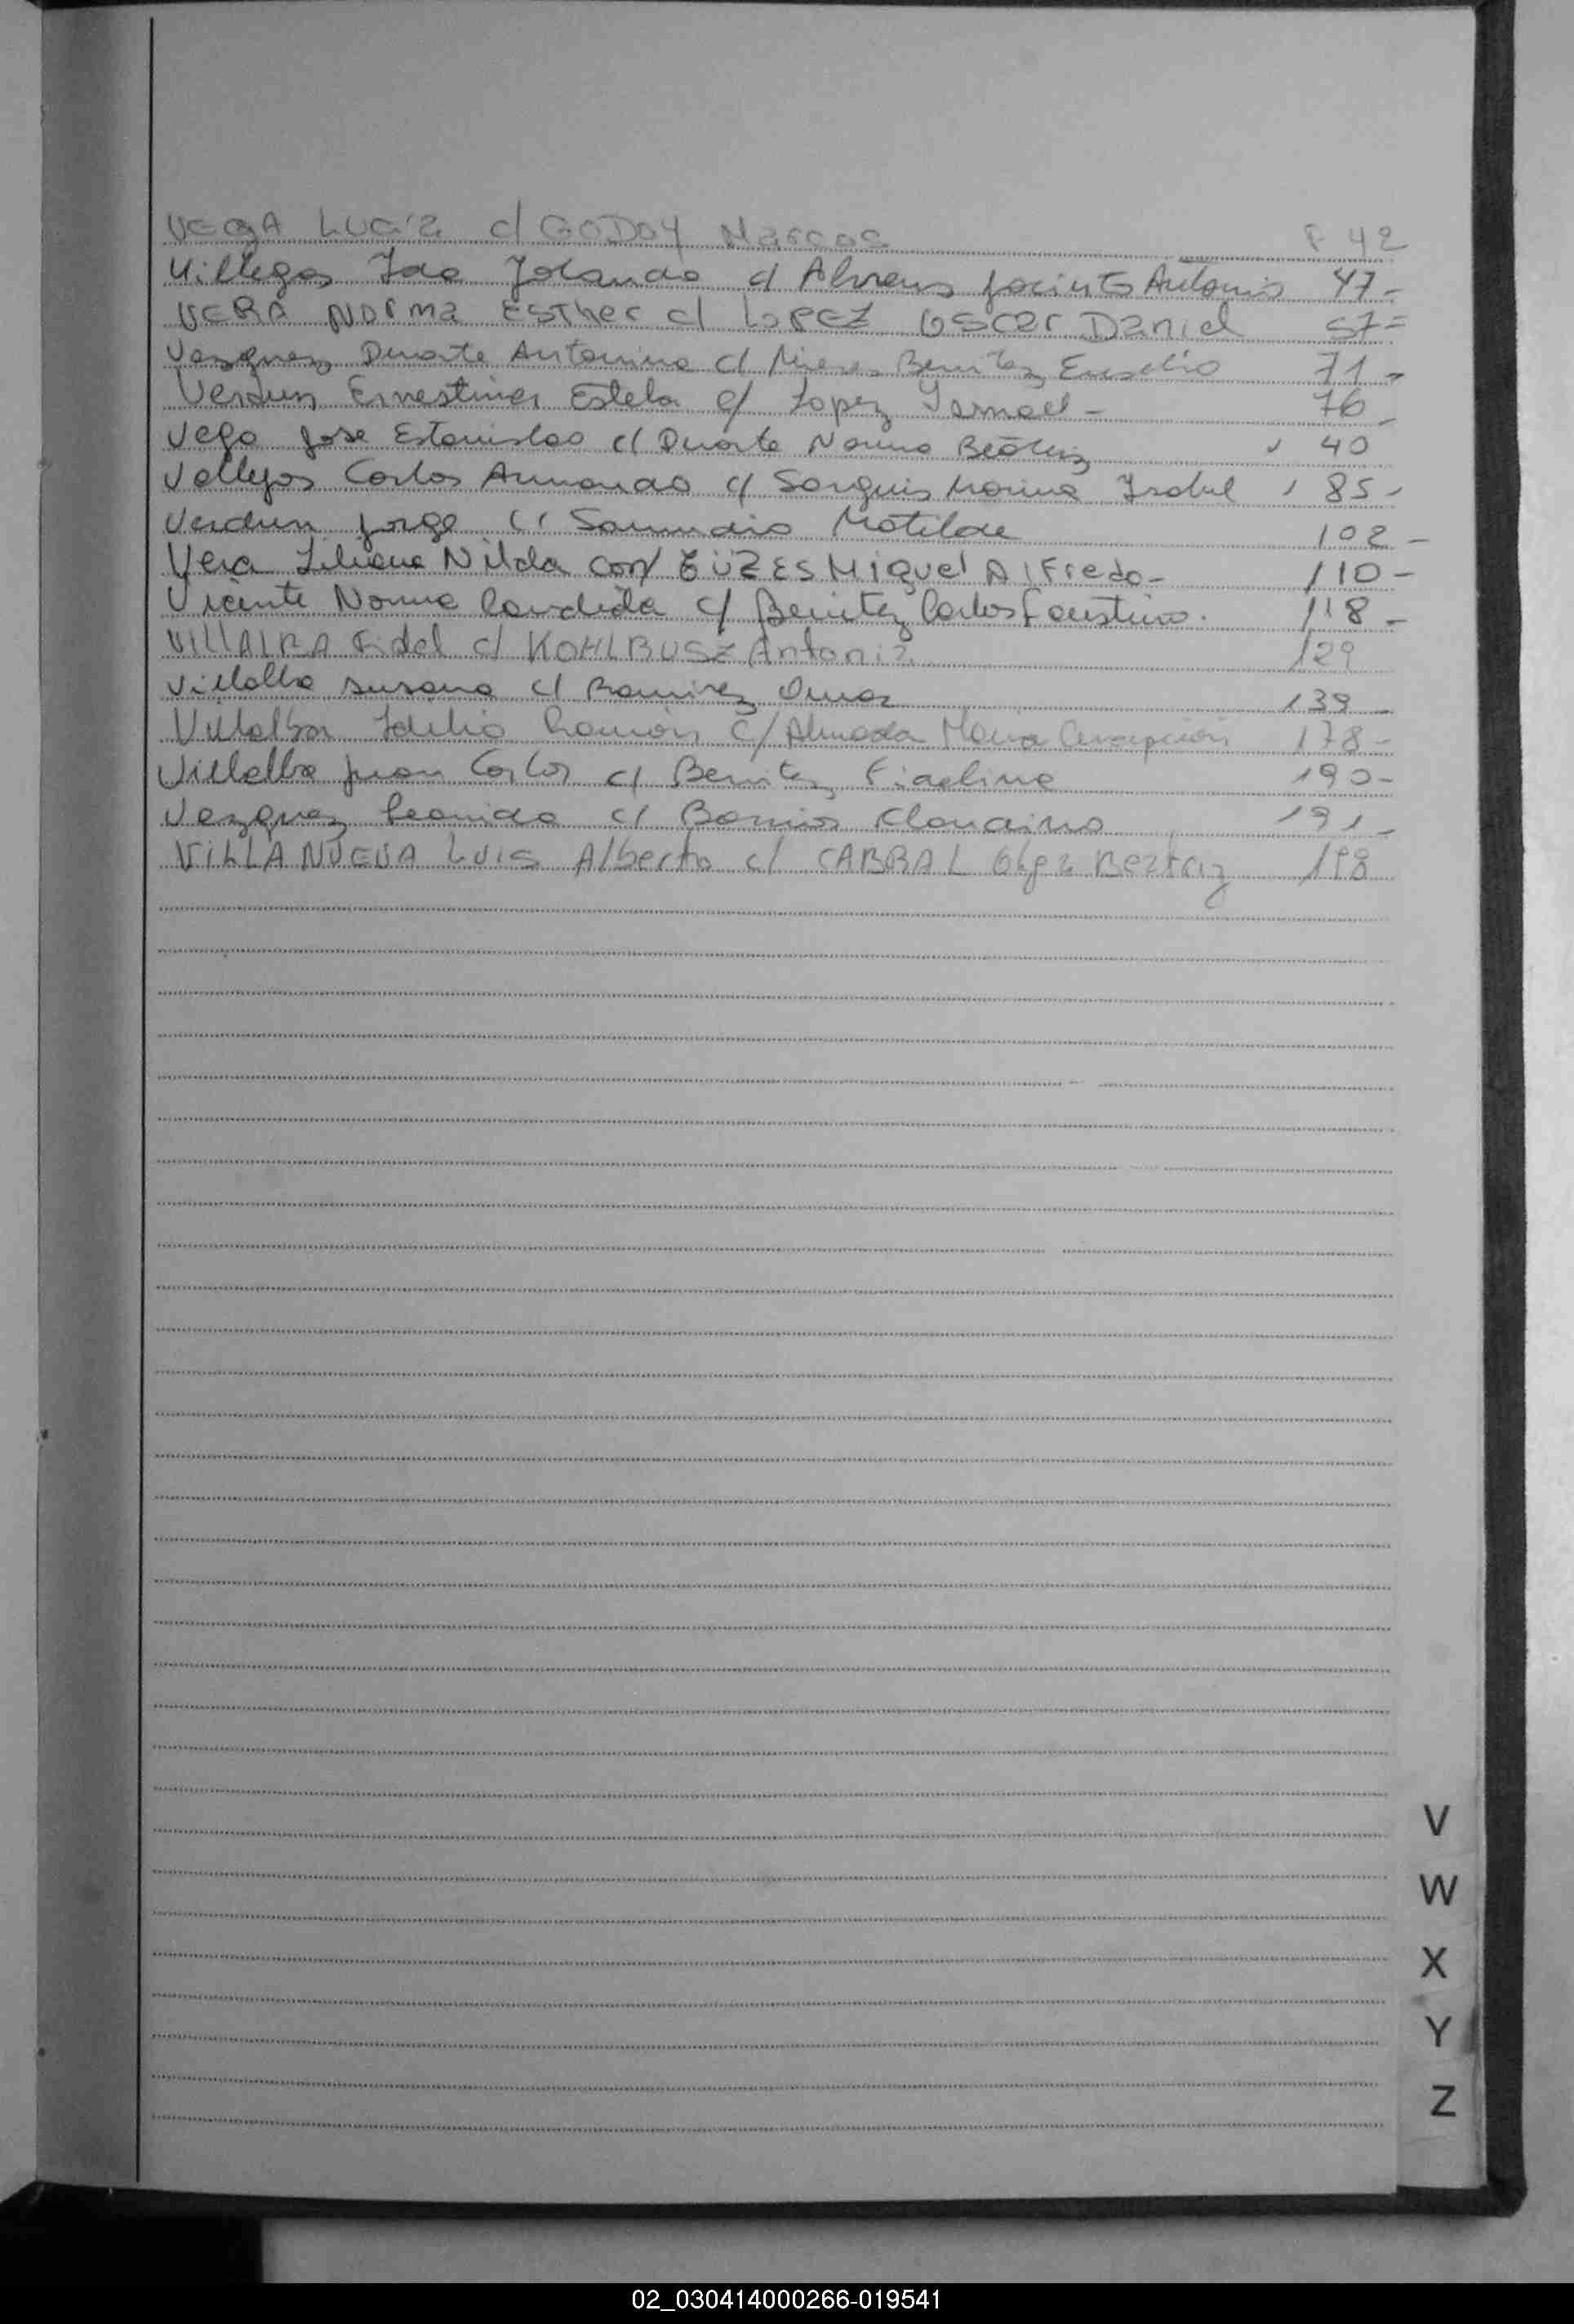 VEGA Lucía c/ GODOY Marcos F 42
Villegas Ida Yolanda c/ Ahrens Jacinto Antonio 47-
VERA NORMA ESTHER c/ LOPEZ OSCAR Daniel 57=
Vazquez Duarte Antonina c/ Benitez Eusebio 71-
Verdun Ernestina Estela c/ Lopez Ismael - 76-
Vega Jose Estanislao c/ Duarte Norma Beatriz 40
Vallejos Carlos Armando c/ Sanguis Marina Isabel 85-
Verdun Jorge c/ Samudio Matilde 102-
Vera Liliana Nilda con/ Miguel Alfredo- 110-
Vicente Norma Candida c/ Benitez Carlos Faustino. 118-
VILLALBA Fidel c/ KOHLBUSZ Antonia 129
Villalba Susana c/ Ramirez Omar 139-
Villalba Idilio Ramón c/ Almada Maria Concepción 178-
Villalba Juan Carlos c/ Benitez Fidelina 190-
Vazquez Leonida c/ Barrios Claudino 191-
VILLANUEVA Luis Alberto c/ CABRAL Olga Beatriz 198
V
W
X
Y
Z
02_030414000266-019541